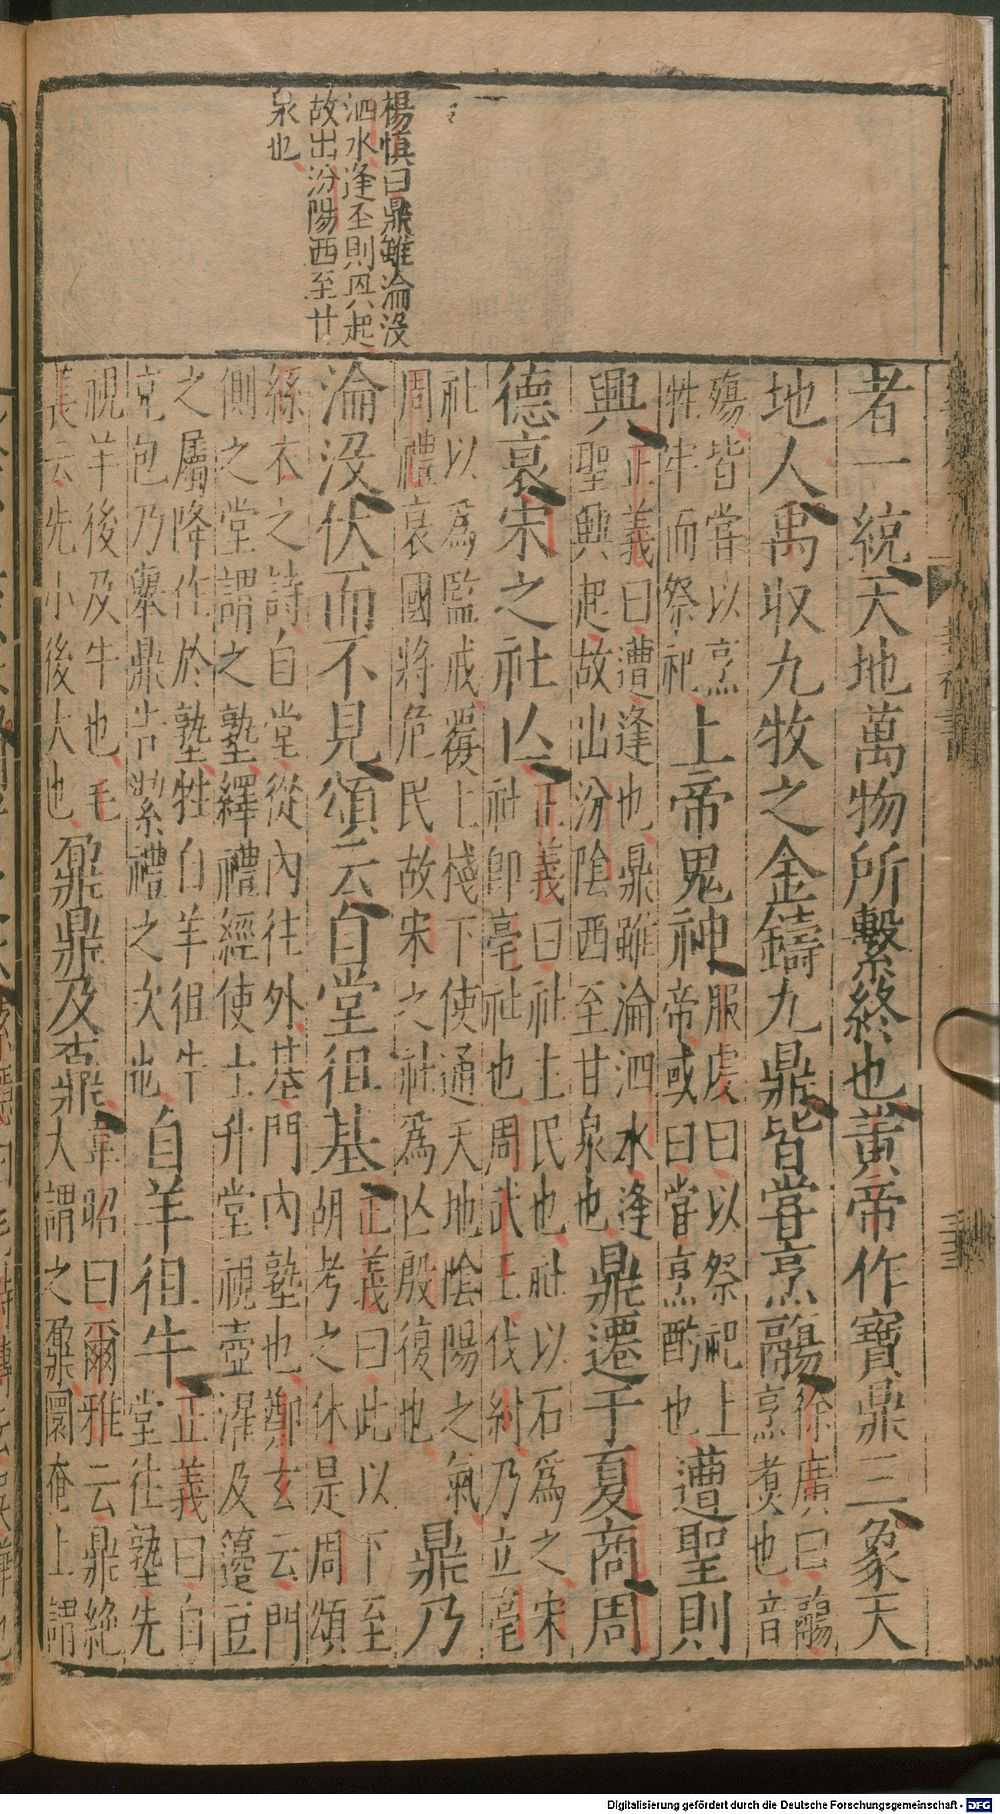 楊慎曰鼎雖淪沒
泗水逢丕則興起
故出汾陽西至甘
泉也
者一統天地萬物所繫終也黃帝作寶鼎三象天
地人禹收九牧之金鑄九鼎皆嘗亨鬺徐廣曰鬺
亨煑也音
殤皆嘗以烹
牲牢而祭祀上帝鬼神服虔曰以祭祀上
帝或曰嘗烹酹也遭聖則
興正義曰遭逢也鼎雖淪泗水逢
聖興起故出汾陰西至甘泉也鼎遷于夏商周
德衰宋之社亾正義曰社主民也社以石爲之宋
社即亳社也周武王伐紂乃立亳
社以爲監戒覆上棧下使通天地陰陽之氣
周禮衰國將危民故宋之社爲亾殷復也鼎乃
淪没伏而不見頌云自堂徂基正義曰此以下至
胡考之休是周頌
絲衣之詩自堂從內往外基門內塾也鄭玄云門
側之堂謂之塾繹禮經使士升堂視壺濯及籩豆
之屬降作於塾牲自羊徂牛
克包乃舉鼎告絜禮之次也自羊徂牛正義曰自
堂往塾先
視羊後及牛也毛
萇云先小後大也鼐鼎及鼒韋昭曰爾雅云鼎絶
大謂之鼐圜奄上謂
Digitalisierung gefördert durch die Deutsche Forschungsgemeinschaft - DFG